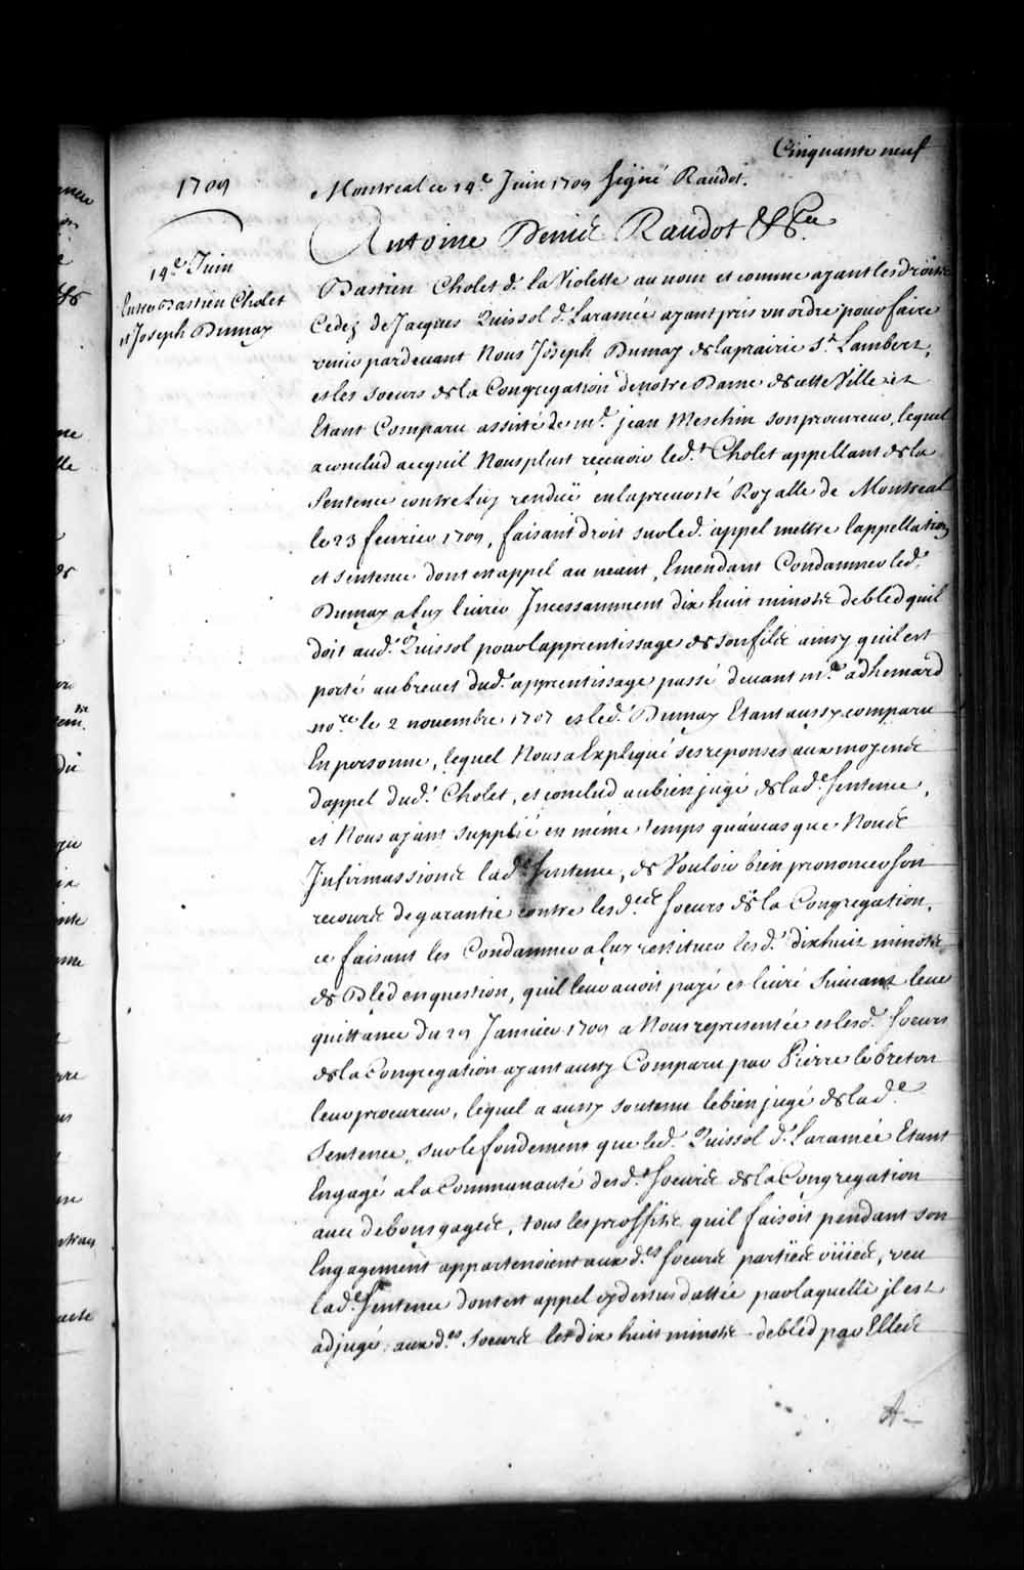 Cinquante neuf
1709
Montreal ce 14.e Juin 1709 signé Raudot.
Antoine Denis Raudot &c.a
14.e Juin
Entre Bastien Cholet
et Joseph Dumay
Bastien Cholet d.t la Violette au nom et comme ayant les droits
Cedez de Jacques Quissol d.t Laramée ayant pris un ordre pour faire
venir pardevant Nous Joseph Dumay de la prairie S.t Lambert,
et les soeurs de la Congregation de notre Dame de cette Ville et
Etant Comparu assisté de m.e jean Meschin son procureur, lequel
a conclud a ce quil Nous plust recevoir led.t Cholet appellant de la
Sentence contre Luy renduë en la prevosté Royalle de Montreal
le 23 fevrier 1709, faisant droit sur led. appel mettre l'appellation
et sentence dont est appel au neant, Emendant Condamner led.
Dumay a luy livrer Incessamment dix huit minots de bled quil
doit aud. Quissol pour l'apprentissage de son fils ainsy quil est
porté au brevet dud. apprentissage passé devant m.e adhemard
no.re le 2 novembre 1707 et led. Dumay Etant aussy comparu
En personne, lequel Nous a Expliqué ses reponses aux moyens
d'appel dud. Cholet, et conclud au bien jugé de lad.e sentence,
et Nous ayant supplié en même temps qu'au cas que Nous
Infirmassions lad.e sentence, de Vouloir bien prononcer son
recours de garantie contre lesd.ites soeurs de la Congregation,
ce faisant les Condamner a luy restituer lesd. dix huit minots
de Bled en question, quil leur avoit payé et livré suivant leur
quittance du 29 Janvier 1709 a Nous representée et lesd. soeurs
de la Congregation ayant aussy Comparu par Pierre le breton
leur procureur, lequel a aussy soutenu le bien jugé de lad.e
sentence, sur le fondement que led. Quissol d.t Laramée Etant
Engagé a la Communauté desd. soeurs de la Congregation
avec de bons gages, tous les proffits quil faisoit pendant son
Engagement appartenoient auxd.es soeurs parties oüies, veu
lad.e sentence dont est appel cy dessus dattée par laquelle il est
adjugé auxd.es soeurs les dix huit minots de bled par Elles
A